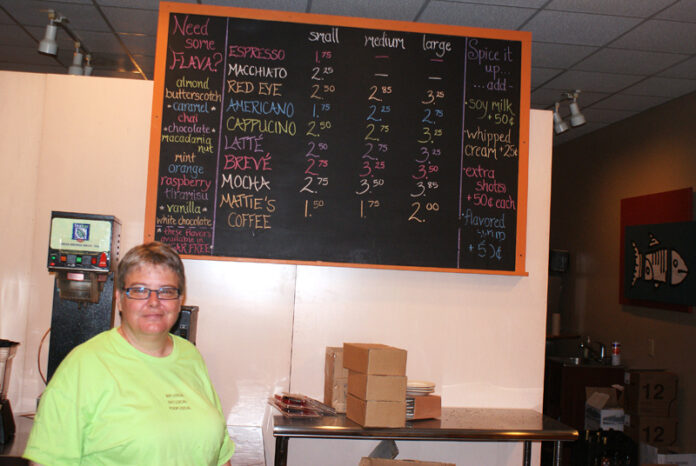 small medium large
Need
some
FLAVA?
almond
butterscotch
*caramel*
chai
*chocolate*
macadamia
nut
mint
orange
raspberry
tiramisu
*vanilla*
white chocolate
* these flavors
available in
SUGAR FREE
ESPRESSO 1.75 — —
MACCHIATO 2.25 — —
RED EYE 2.50 2.85 3.25
AMERICANO 1.75 2.25 2.75
CAPPUCINO 2.50 2.75 3.25
LATTÉ 2.50 2.75 3.25
BREVÉ 2.75 3.25 3.50
MOCHA 2.75 3.50 3.85
MATTIE'S
COFFEE 1.50 1.75 2.00
Spice it
up...
...add-
soy milk
+50¢
whipped
cream +25¢
extra
shot(s)
+50¢ each
flavored
+50¢
12
12
12